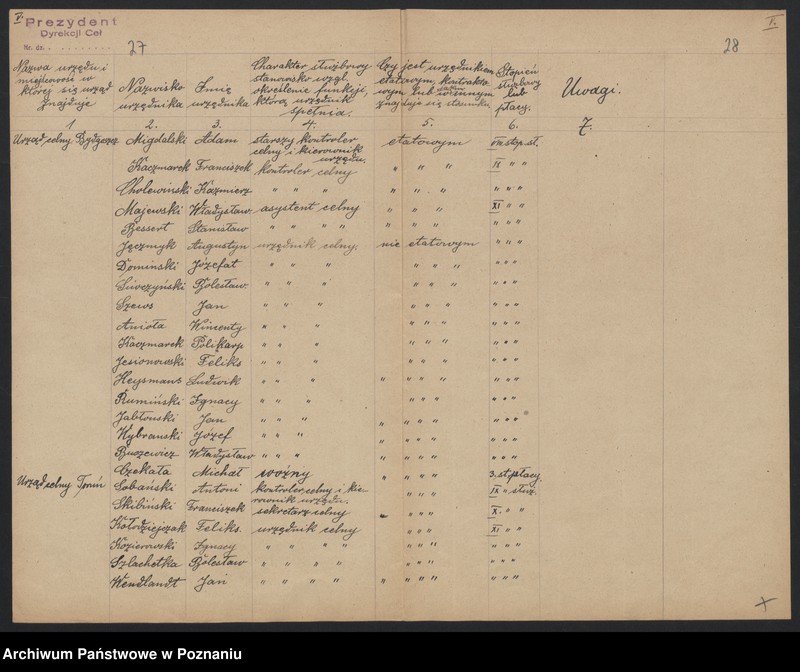 V.
Prezydent
Dyrekcji Ceł
Nr. dz.
27
28
V.
Nazwa urzędu i miejscowości w której się urząd znajduje
Nazwisko urzędnika
Imię urzędnika
Charakter służbowy stanowisko wzgl. określenie funkcji, którą urzędnik spełnia.
Czy jest urzędnikiem etatowym, kontraktowym lub w innym znajduje się stosunku
Stopień służbowy lub płacy.
Uwagi.
1 2. 3. 4. 5. 6. 7.
Urząd celny Bydgoszcz Migdalski Adam starszy kontroler celny i kierownik urzędu. etatowym VIII stop. sł.
Kaczmarek Franciszek kontroler celny " " " IX " "
Cholewiński Kazmierz " " " " " " " " "
Majewski Władysław. asystent celny " " " XI " "
Bessert Stanisław " " " " " " " " " "
Jęczmyk Augustyn urzędnik celny. nie etatowym " " "
Domiński Józefat " " " " " " " " "
Bolesław. " " " " " " " " "
Szews Jan " " " " " " " " "
Anioła Klmenty " " " " " " " " "
Kaczmarek Polikarp " " " " " " " " "
Jesionowski Feliks " " " " " " " " "
Heysmans Ludwik " " " " " " " " " "
Rumiński Ignacy " " " " " " " " "
Jabłonski Jan " " " " " " " " " "
Kybranski Józef " " " " " " " " " "
Buszewicz Władysław " " " " " " " " " "
Czekała Michał woźny " " " " 3. st. płacy.
Urząd celny Toruń Sobański Antoni kontroler celny i kierownik urzędu. " " " IX " służ.
Skibiński Franciszek sekretarz celny " " " " X. " "
Kołodziejczak Feliks. urzędnik celny " " " XI " "
Kozierowski Ignacy " " " " " " " " " "
Szlachetka Bolesław " " " " " " " " " "
Wendlandt Jan " " " " " " " " " "
Archiwum Państwowe w Poznaniu